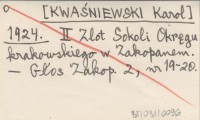 [KWAŚNIEWSKI Karol]
1924. II Zlot Sokoli Okręgu
krakowskiego w Zakopanem.
— Głos Zakop. 2, nr 19-20.